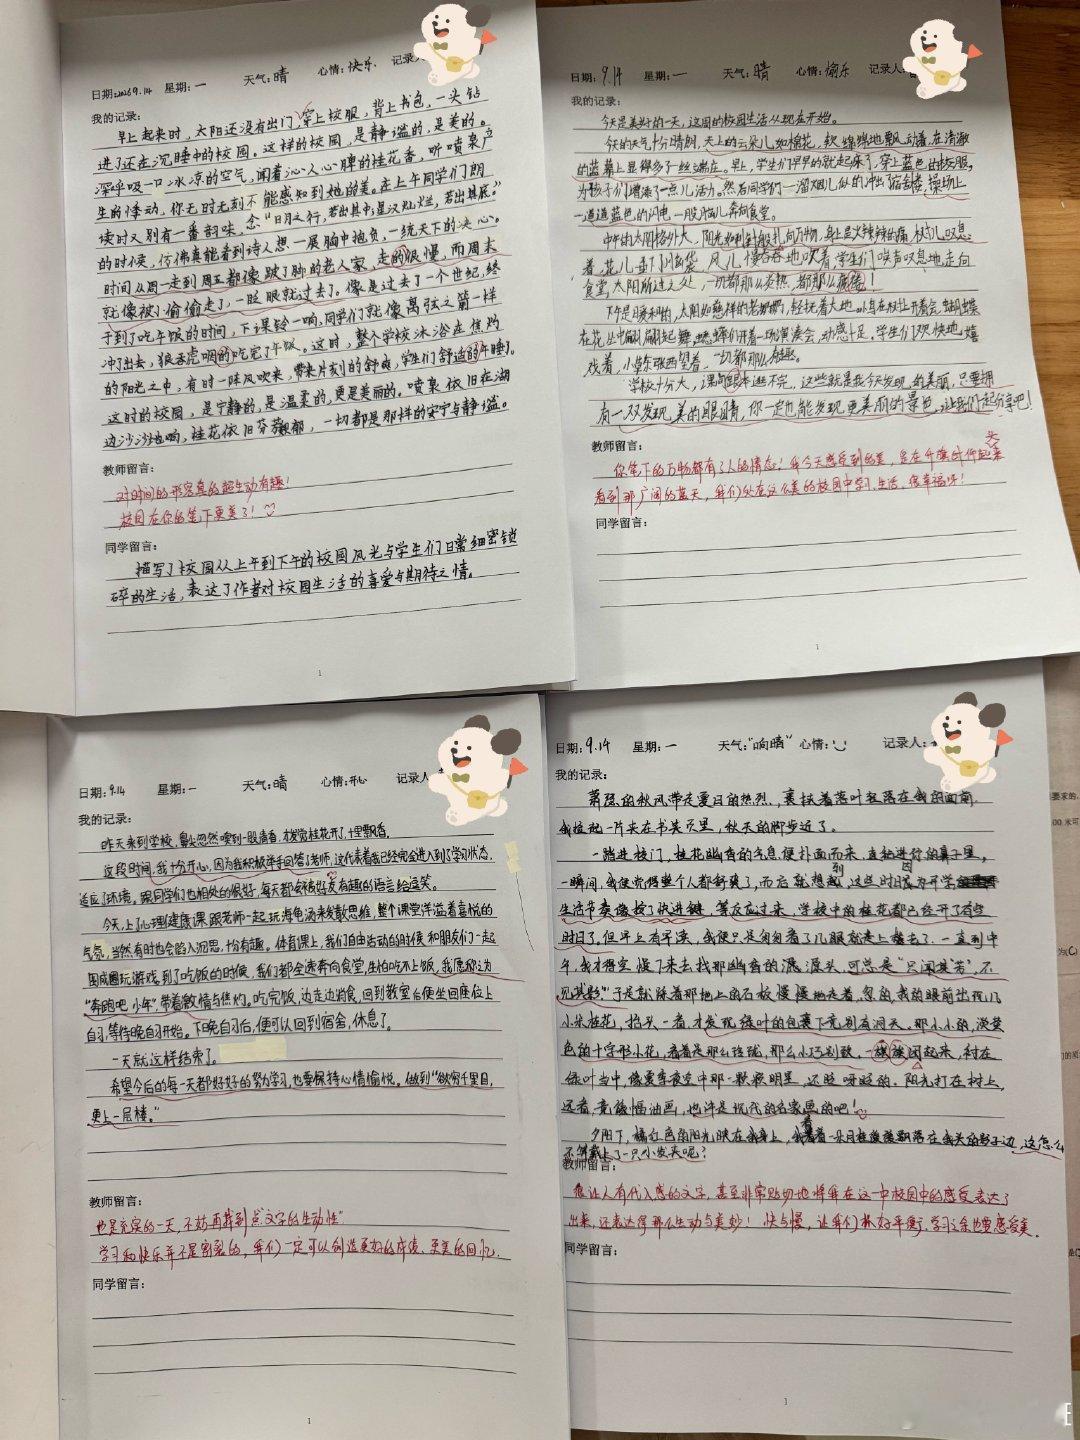 日期:2026 9.14 星期:一 天气:晴 心情:快乐. 记录人
我的记录:
早上起来时,太阳还没有出门,穿上校服,背上书包,一头钻
进了还在沉睡中的校园。这样的校园,是静谧的,是美的。
深乎吸一口冰凉的空气,闻着沁人心脾的桂花香,听喷泉广
生的悸动,你无时无刻不能感知到她的美。在上午同学们朗
读时又别有一番韵味,念"日月之行,若出其中;星汉灿烂,若出其底。"
的时候,仿佛真能看到诗人想一展胸中抱负,一统天下的决心。
时间从周一走到周五都像跛了脚的老人家,走的很慢,而周末
就像被小偷偷走了,一眨眼就过去了。像是过去了一个世纪,终
于到了吃午饭的时间,下课铃一响,同学们就像离弦之箭一样
冲了出去,狼吞虎咽的吃完了午饭。这时,整个学校沐浴在焦灼
的阳光之中,有时一阵风吹来,带来片刻的舒爽,学生们舒适的午睡了。
这时的校园,是宁静的,是温柔的,更是美丽的。喷泉依旧在湖
边沙沙地响,桂花依旧芬芳馥郁,一切都是那样的安宁与静谧。
教师留言:
对时间的形容真的超生动有趣!
校园在你的笔下更美了!
同学留言:
描写了校园从上午到下午的校园风光与学生们日常细密锁
碎的生活,表达了作者对校园生活的喜爱与期待之情。
1
日期: 9.14 星期:一 天气:晴 心情:愉乐 记录人:
我的记录:
今天是美好的一天,这周的校园生活从现在开始。
今的天气十分晴朗,天上的云朵儿如棉花,软绵绵地飘动着,在清澈
的蓝幕上显得多了一丝端庄。早上,学生们早早的就起床了,穿上蓝色的校服,
为孩子们增添了一点儿活力。然后同学们一溜烟儿似的冲出了宿舍楼,操场上
一道道蓝色的闪电,一股脑儿奔向食堂。
中午的太阳格外大,阳光如刺针般扎向万物,身上是火辣辣的痛,树儿叹息
着,花儿垂下小脑袋,风儿慢吞吞地吹着,学生们唉声叹息地走向
食堂,太阳所过之处,一切都那么炎热,都那么疲倦!
下午是胜利的,太阳如慈祥的老奶奶,轻抚着大地,小鸟在枝丫开着会,蝴蝶
在花丛中翩翩起舞,蟋蟀们开着一场演奏会,动感十足。学生们欢快地嬉
戏着,小草东张西望着,一切都那么有趣。
学校十分大,课间跟本逛不完,这些就是我今天发现的美丽,只要拥
有一双发现美的眼睛,你一定也能发现更美丽的景色,让我们一起分享吧!
教师留言:
你笔下的万物都有了人的情态!我今天感受到的美,是在升旗时仰起头来
看到那广阔的蓝天,我们处在这么美的校园中学习、生活,很幸福呀!
同学留言:
1
日期: 9.14 星期: 一 天气:晴 心情:开心 记录人
我的记录:
昨天来到学校,鼻尖忽然嗅到一股清香,才发觉桂花开了,十里飘香。
这段时间,我十分开心,因为我积极举手回答了老师,这代表着我已经完全进入到了学习状态,
适应了环境。跟同学们也相处的很好,每天都会被好友有趣的语言给逗笑。
今天,上心理健康课,跟老师一起玩海龟汤来发散思维,整个课堂洋溢着喜悦的
气氛,当然有时也会陷入沉思,十份有趣。体育课上,我们自由活动的时候和朋友们一起
围成圈玩游戏。到了吃饭的时候,我们都全速奔向食堂,生怕吃不上饭,我愿称为
"奔跑吧,少年",带着激情与焦灼。吃完饭,边走边消食,回到教室后便坐回座位上
自习,等待晚自习开始。下晚自习后,便可以回到宿舍,休息了。
一天就这样结束了。
希望今后的每一天都好好的努力学习,也要保持心情愉悦。做到"欲穷千里目,
更上一层楼。"
教师留言:
也是充实的一天,不妨再找到点文字的生动性~
学习和快乐并不是割裂的,我们一定可以创造更好的成绩,更美的回忆.
同学留言:
1
日期: 9.14 星期: 一 天气:"响晴" 心情: 记录人:
我的记录:
萧瑟的秋风带走夏日的热烈,裹挟着落叶轻落在我的面前。
我捡起一片夹在书页里,秋天的脚步近了。
一踏进校门,桂花幽香的气息便扑面而来,直钻进你的鼻子里。
一瞬间,我便觉得整个人都舒爽了,而后就想到,这些时日因为开学
生活节奏像按了快进键,等反应过来,学校中的桂花都已经开了有些
时日了。但早上有早读,我便只是匆匆看了几眼就走上楼去了。一直到中
午,我才得空慢下来去找那幽香的源头,可总是"只闻其芳,不
见其影"于是就踩着那地上的石板慢慢地走着,忽的,我的眼前出现几
小朵桂花,抬头一看,才发现绿叶的包裹下竟别有洞天。那小小的,淡黄
色的十字形小花,看着是那么玲珑,那么小巧别致,一簇簇团起来,衬在
绿叶当中,像夏季夜空中那一颗颗明星,还眨呀眨的。阳光打在树上,
远看,竟像幅油画,也许是现代的名家画的吧!
夕阳下,橘红色的阳光映在我身上,我看着一朵月桂缓缓飘落在我头的影子边,这怎么
不算戴上了一只小发夹呢?
教师留言:
很让人有代入感的文字,甚至非常贴切地将我在这一中校园中的感受表达了
出来,还表达得那么生动与美妙!快与慢,让我们抓好平衡,学习之余也要感受美.
同学留言:
1